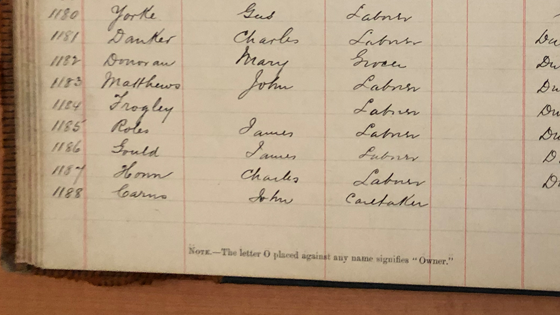 1180 Yorke Gus Labrer
1181 Danker Charles Labrer Du
1182 Donovan Mary Grocer Du
1183 Matthews John Labrer Du
1184 Frogley Labrer Du
1185 Roles James Labrer Du
1186 Gould James Labrer D
1187 Honn Charles Labrer Du
1188 Carns John Caretaker
NOTE.—The letter O placed against any name signifies "Owner."